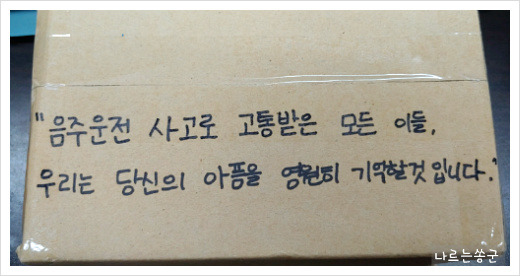 "음주운전 사고로 고통받은 모든 이들,
우리는 당신의 아픔을 영원히 기억할것입니다."
나르는쏭군